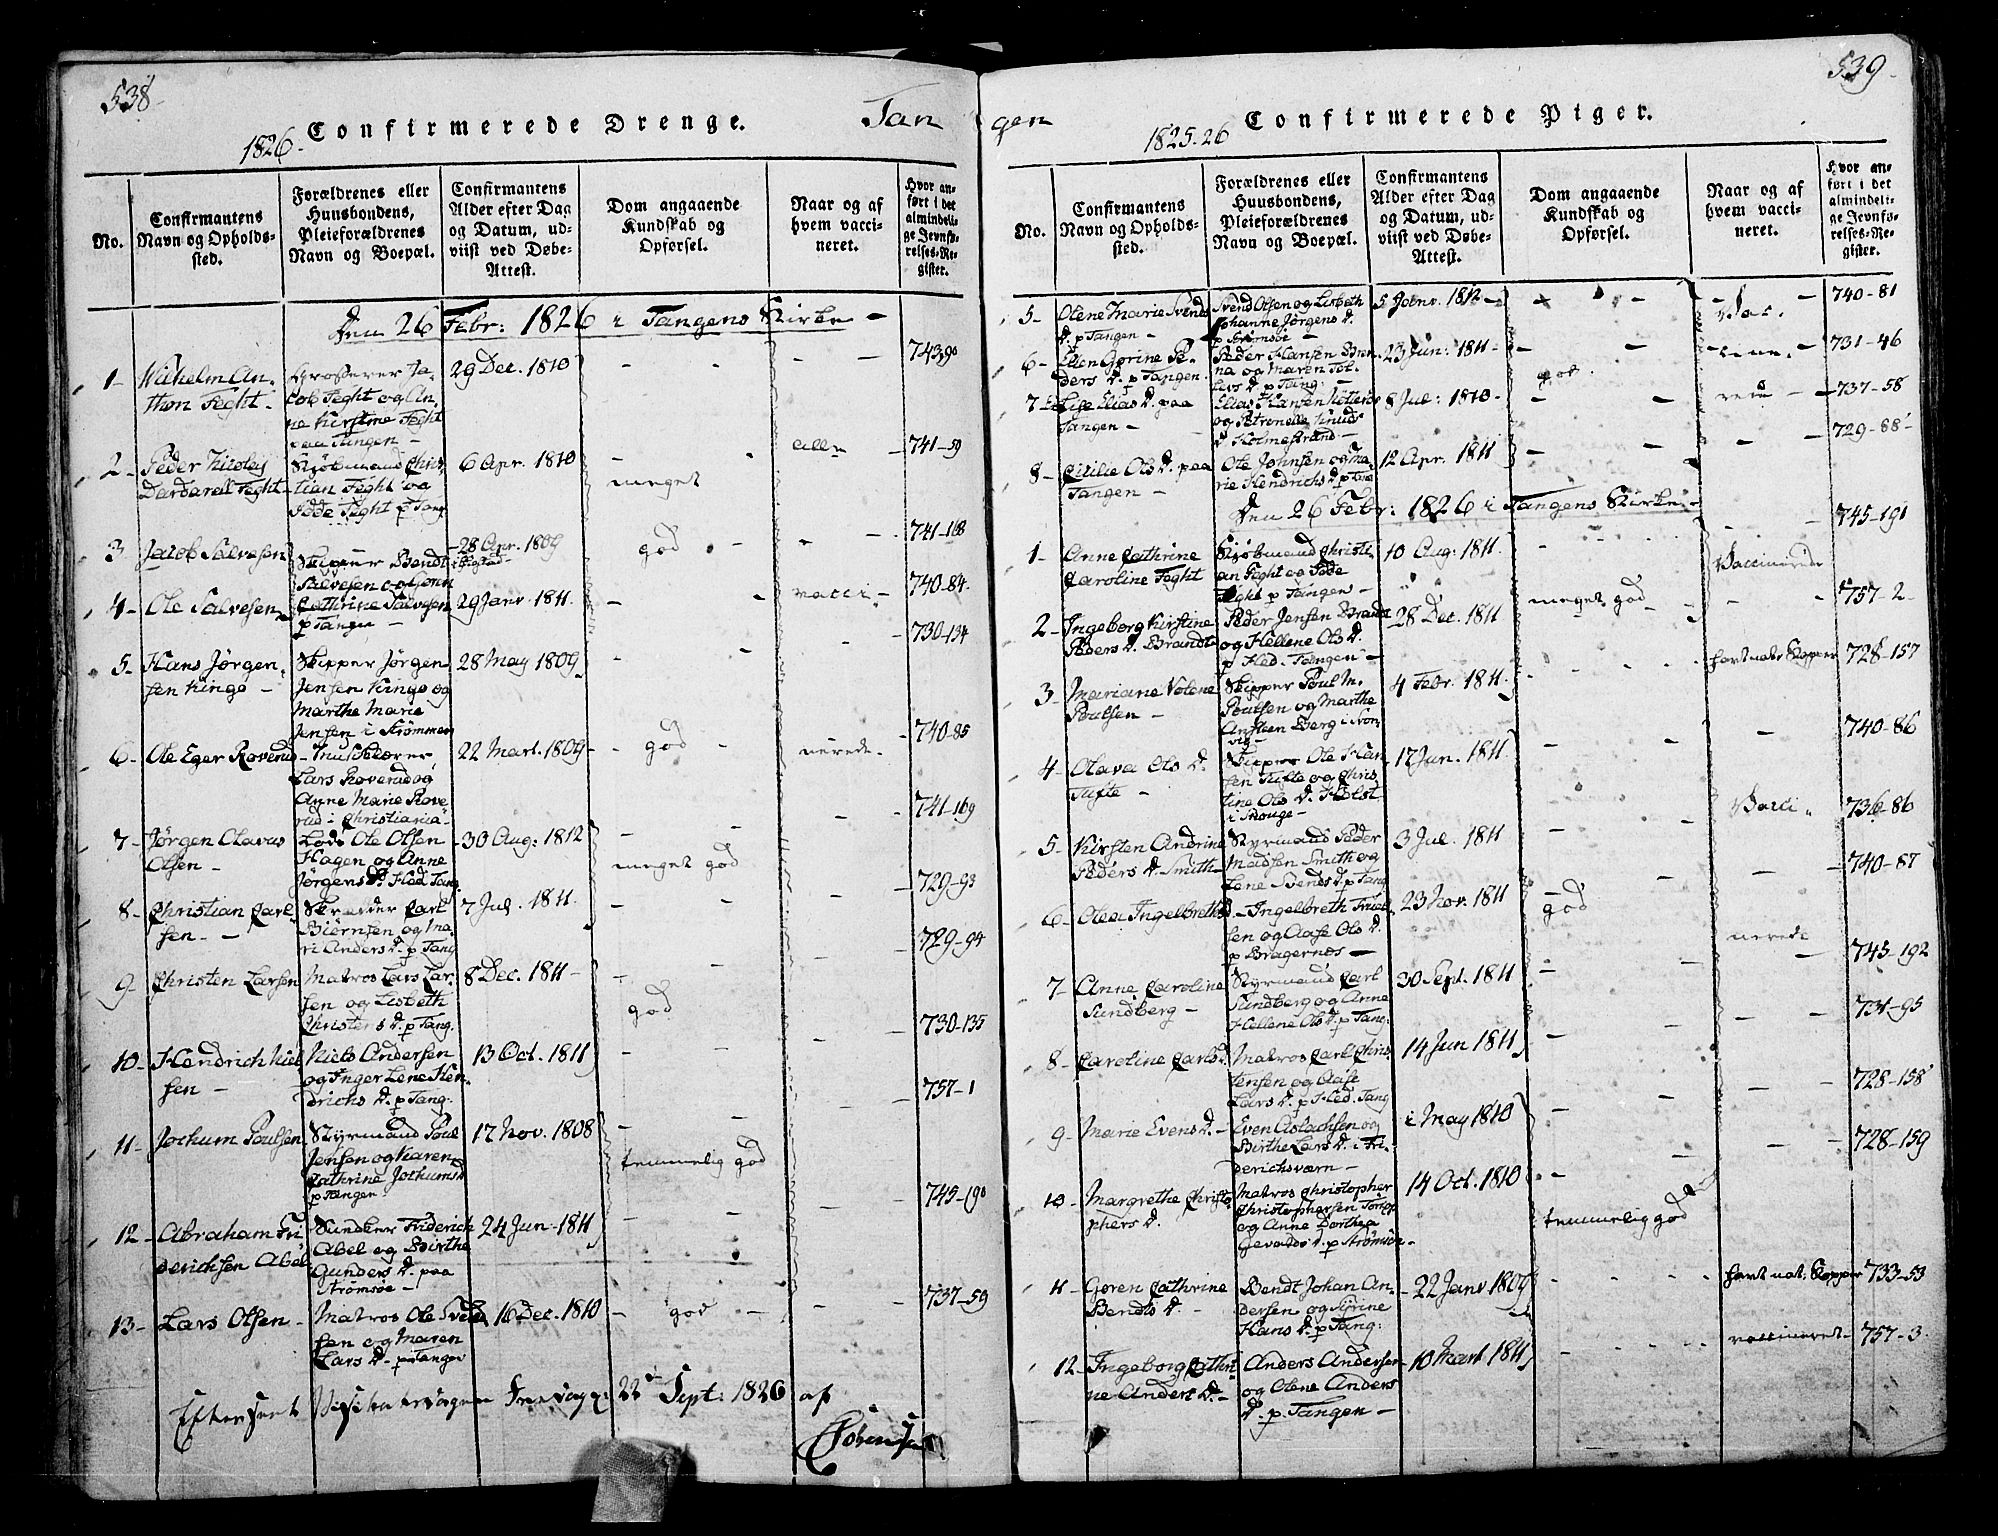 538
Tan
Confirmerede Drenge.
1826
No.
Confirmantens
Navn og Opholds-
sted.
Forældrenes eller
Huusbondens,
Pleieforældrenes
Navn og Boepæl.
Confirmantens
Alder efter Dag
og Datum, ud-
viist ved Døbe-
Attest.
Dom angaaende
Kundskab og
Opførsel.
Naar og af
hvem vacci-
neret.
Hvor an-
ført i det
almindeli-
ge Jevnfø-
relses-Re-
gister.
Den 26 Febr: 1826 i Tangens Kirke
1 - Wilhelm An-
thon Feght -
Grosserer Ja-
cob Feght og An-
ne Kirstine Feght
paa Tangen -
29 Dec. 1810
743-90
2 - Peder Nicolay
Dardarell Feght
Kjøbmand Chris-
tian Feght og
Feght p Tang
6 Apr. 1810
meget
741-59
3 Jacob Salvesen
Skipper Bendt
Salvesen og
28 Apr. 1809
god
741-168
4 - Ole Salvesen
Cathrine Salvesen
p Tangen -
29 Janv 1811.
vacci -
740-84
5 - Hans Jørgen-
sen Kinge -
Skipper Jørgen
Jensen Kinge og
Marthe Marie
Jensen i Strømmen
28 May 1809
730-134
6 - Ole Eger Roverud
Lars Roverud og
Anne Marie Rove-
rud i Christiania -
22 Mart. 1809
god
nerede
740-85
7 - Jørgen Olavus
Olsen -
Lods Ole Olsen
Hagen og Anne
Jørgens D. Hed Tang
30 Aug: 1812
meget god
741-169
8 - Christian Carl-
sen - -
Skrædder Carl
Biørnsen og Ma-
ri Anders D. p Tang
7 Jul. 1811.
729-93
9 - Christen Larsen
Matros Lars Lar-
sen og Lisbeth
Christens D. p Tang.
8 Dec. 1811 -
god
729-94
10 - Hendrich Niel-
sen -
Niels Andersen
og Inger Lene Hen-
drichs D. p Tang:
13 Oct. 1811
730-135
11 - Jochum Poulsen
Styrmand Poul
Jensen og Karen
Cathrine Jochums D
p Tangen
17 Nov. 1808
temmelig god
757-1
12 - Abraham Fri-
derichsen Abel
Friderich
Abel og Birthe
Gunders D. paa
Strømsøe -
24 Jun - 1811
745-190
13 - Lars Olsen -
Matros Ole
sen og Maren
Lars D. p Tangen
16 Dec. 1810
god
737-59
22 Sept: 1826 af
539
gen
Confirmerede Piger.
1825-26
No.
Confirmantens
Navn og Opholds-
sted.
Forældrenes eller
Huusbondens,
Pleieforældrenes
Navn og Boepæl.
Confirmantens
Alder efter Dag
og Datum, ud-
viist ved Døbe-
Attest.
Dom angaaende
Kundskab og
Opførsel.
Naar og af
hvem vacci-
neret.
Hvor an-
ført i det
almindeli-
ge Jevnfø-
relses-Re-
gister.
5 - Olene Marie Svends
D. p Tangen -
Svend Olsen og Lisbeth
Johanne Jørgens D.
p Strømsøe -
5 Janv. 1812 -
Vac.
740-81
6 - Ellen Gorine Pe-
ders D. p Tangen.
Peder Hansen
og Maren
D. p Tang:
23 Jun: 1811 -
god
731-46
7 - Lise Elias D. paa
Tangen -
Elias Hansen
og Petronelle Knuds
D. Holmestrand -
8 Jul: 1810 -
737-58
8 - Cicilie Ols D. paa
Tangen -
Ole Johnsen og Ma-
rie Hendrichs D p Tang
12 Apr. 1811
729-88
Den 26 Febr: 1826 i Tangens Kirke
1 - Anne Cathrine
Caroline Feght
Kjøbmand Christi-
an Feght og
Feght p Tangen -
10 Aug: 1811.
Vaccinerede
745-191
2 - Ingeborg Kirstine
Peders D. Brandt
Peder Jensen Brandt
og Hellene Ols D.
p Hed. Tangen -
28 Dec. 1811
meget god -
757-2
3 - Mariane Volene
Poulsen -
Skipper Poul M.
Poulsen og Marthe
Berg i Svom-
vig -
4 Febr. 1811.
havt nat: Kopper
728-157
4 - Olava Ols D.
Tufte -
Skipper Ole Han-
sen Tufte og Chris-
tine Ols D. Holst
i Kouge -
17 Jun. 1811
740-86
5 - Kirsten Andrine
Peders D. Smith
Styrmand Peder
Madsen Smith og
Lene Bends D. p Tang
3 Jul. 1811
Vacci -
736-86
6 - Olea Ingelbreths D
Ingelbreth Truel-
sen og Aase Ols D.
p Bragernes -
23 Nov. 1811
god
nerede
740-87
7 - Anne Caroline
Sundberg -
Styrmand Carl
Sundberg og Anne
Hellene Ols D. p Tang:
30 Sept. 1811
745-192
8 - Caroline Carls D.
Matros Carl Chris-
tensen og Aase
Lars D. p Hed. Tang
14 Jun 1811
731-95
9 - Marie Evens D. -
Even Aslachsen og
Birthe Lars D. i Fri-
derichsværn -
i May 1810
728-158
10 - Margrethe Christo-
phers D.
Matros Christopher
Christophersen
og Anne Dorthea
D. p Strømsøe -
14 Oct. 1810
temmelig god
728-159
11 - Gøren Cathrine
Bendts D. -
Bendt Johan An-
dersen og Syrine
Hans D. p Tang:
22 Janv 1809
havt nat: Kopper
733-53
12 - Ingeborg Cathri-
ne Anders D. -
Anders Andersen
og Olene Anders
D. p. Tangen -
10 Mart 1811
vaccineret -
757-3